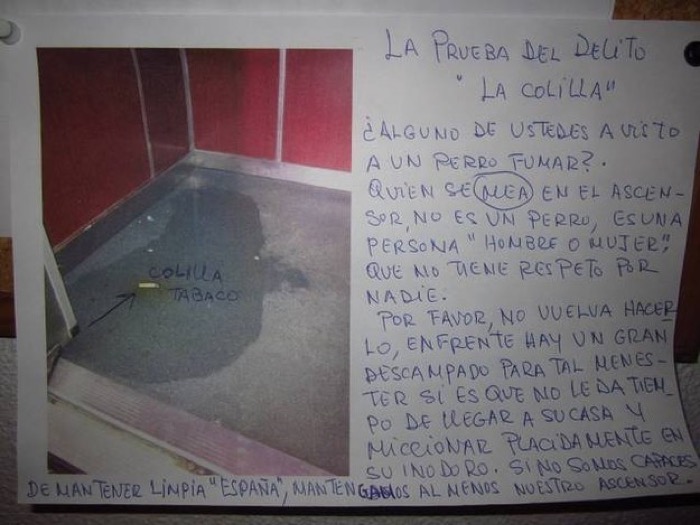 LA PRUEBA DEL DELITO
"LA COLILLA"
¿ALGUNO DE USTEDES A VISTO
A UN PERRO FUMAR?.
QUIEN SE MEA EN EL ASCEN-
SOR, NO ES UN PERRO, ES UNA
PERSONA "HOMBRE O MUJER",
QUE NO TIENE RESPETO POR
NADIE.
POR FAVOR, NO VUELVA HACER
LO, ENFRENTE HAY UN GRAN
DESCAMPADO PARA TAL MENES-
TER SI ES QUE NO LE DA TIEM-
PO DE LLEGAR A SU CASA Y
MICCIONAR PLACIDAMENTE EN
SU INODORO. SI NO SOMOS CAPACES
DE MANTENER LIMPIA "ESPAÑA", MANTENGAMOS AL MENOS NUESTRO ASCENSOR.
COLILLA
TABACO